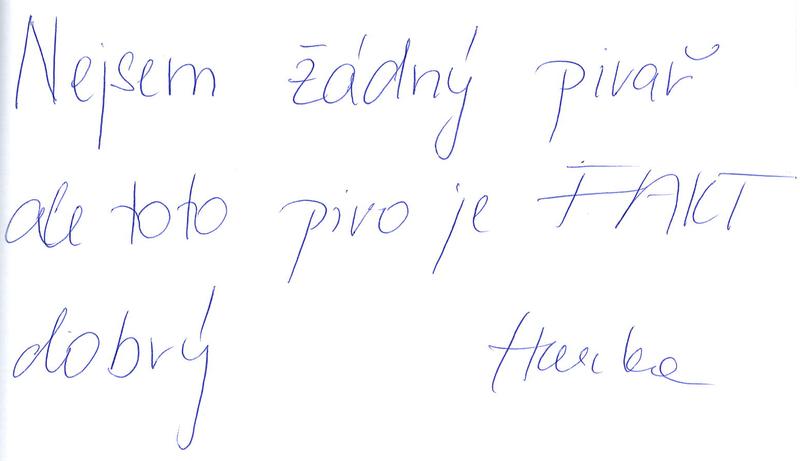 Nejsem žádný pivař
ale toto pivo je FAKT
dobrý Hanka